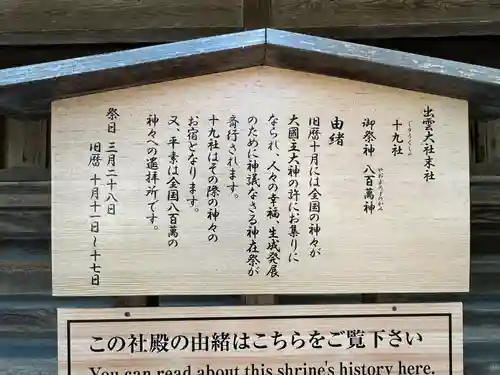 出雲大社末社
十九社
じゅうくしゃ
御祭神 八百萬神
やおよろづのかみ
由緒
旧暦十月には全国の神々が
大國主大神の許にお集りに
なられ、人々の幸福、生成発展
のために神議なさる神在祭が
斎行されます。
十九社はその際の神々の
お宿となります。
又、平素は全国八百萬の
神々への遙拝所です。
祭日 三月二十八日
旧暦 十月十一日～十七日
この社殿の由緒はこちらをご覧下さい
You can read about this shrine's history here.